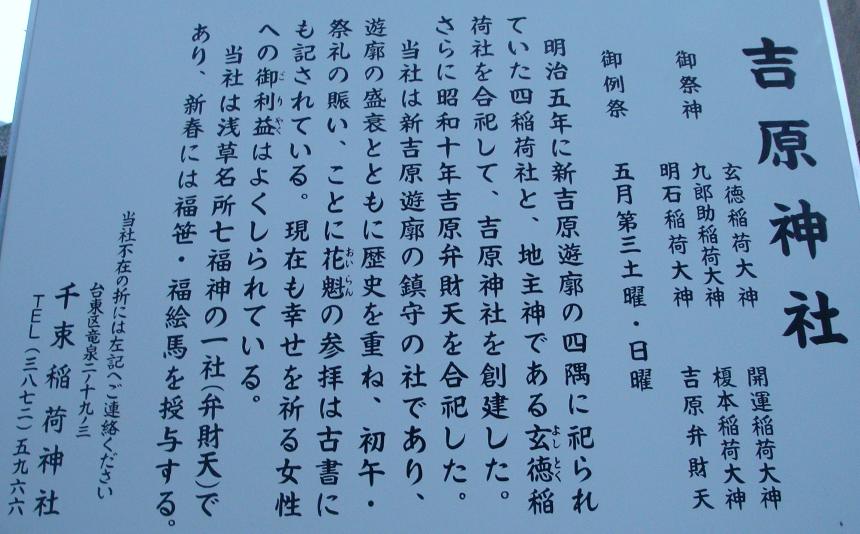 吉原神社
御祭神
玄徳稲荷大神 開運稲荷大神
九郎助稲荷大神 榎本稲荷大神
明石稲荷大神 吉原弁財天
御例祭 五月第三土曜・日曜
明治五年に新吉原遊廓の四隅に祀られ
ていた四稲荷社と、地主神である玄徳稲
よしとく
荷社を合祀して、吉原神社を創建した。
さらに昭和十年吉原弁財天を合祀した。
当社は新吉原遊廓の鎮守の社であり、
遊廓の盛衰とともに歴史を重ね、初午・
祭礼の賑い、ことに花魁の参拝は古書に
おいらん
も記されている。現在も幸せを祈る女性
への御利益はよくしられている。
ごりやく
当社は浅草名所七福神の一社(弁財天)で
あり、新春には福笹・福絵馬を授与する。
当社不在の折には左記へご連絡ください
台東区竜泉二ノ十九ノ三
千束稲荷神社
TEL(三八七二)五九六六